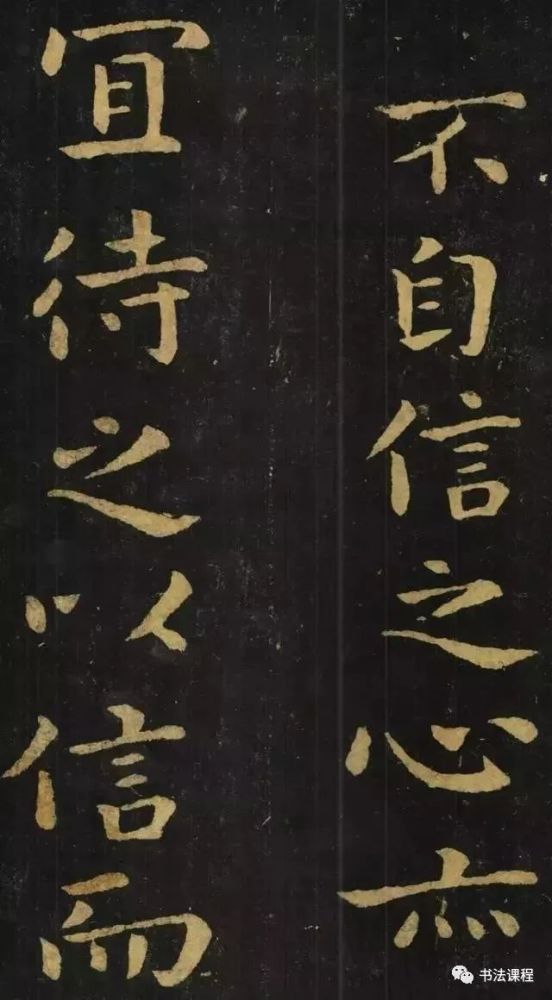 不自信之心亦
宜待之以信而
书法课程